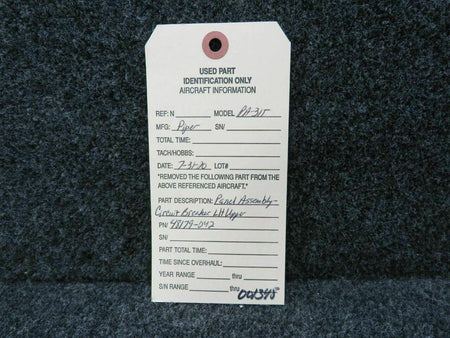 USED PART
IDENTIFICATION ONLY
AIRCRAFT INFORMATION
REF: N MODEL PA-31T
MFG: Piper SN/
TOTAL TIME:
TACH/HOBBS:
DATE: 7-31-20 LOT#
*REMOVED THE FOLLOWING PART FROM THE
ABOVE REFERENCED AIRCRAFT.*
PART DESCRIPTION: Panel Assembly-
Circuit Breaker LH Upper
PN/ 48179-042
SN/
PART TOTAL TIME:
TIME SINCE OVERHAUL:
YEAR RANGE thru
S/N RANGE thru 001345